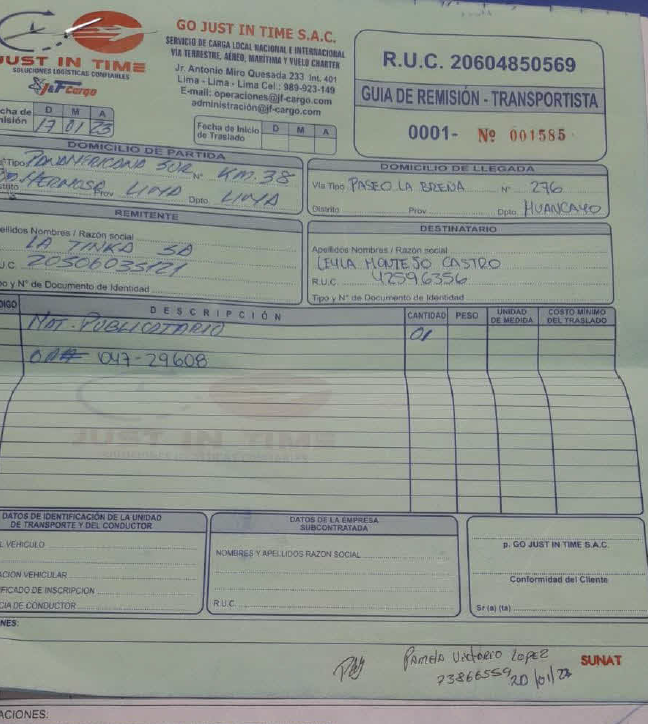 GO JUST IN TIME S.A.C.
SERVICIO DE CARGA LOCAL NACIONAL E INTERNACIONAL
VIA TERRESTRE, AÉREO, MARÍTIMA Y VUELO CHARTER
Jr. Antonio Miro Quesada 233 Int. 401
Lima - Lima - Lima Cel.: 989-923-149
E-mail: operaciones@jf-cargo.com
administración@jf-cargo.com
JUST IN TIME
SOLUCIONES LOGISTICAS CONFIABLES
J&F Cargo
R.U.C. 20604850569
GUIA DE REMISIÓN - TRANSPORTISTA
0001- Nº 001585
cha de D M A
misión 17 01 23
Fecha de Inicio de Traslado D M A
DOMICILIO DE PARTIDA
Tipo PANAMERICANA SUR Nº KM. 38
HERMOSA Prov LIMA Dpto. LIMA
DOMICILIO DE LLEGADA
Vía Tipo PASEO LA BREÑA Nº 276
Distrito Prov Dpto. HUANCAYO
REMITENTE
ellidos Nombres / Razón social
LA TINKA SA
U.C. 20506035121
po y N° de Documento de Identidad
DESTINATARIO
Apellidos Nombres / Razón social
LEYLA MONTEJO CASTRO
R.U.C. 42596356
Tipo y N° de Documento de Identidad
DIGO DESCRIPCIÓN CANTIDAD PESO UNIDAD DE MEDIDA COSTO MÍNIMO DEL TRASLADO
MAT. PUBLICITARIO 01
047-29608
DATOS DE IDENTIFICACIÓN DE LA UNIDAD
DE TRANSPORTE Y DEL CONDUCTOR
VEHICULO
ACION VEHICULAR
IFICADO DE INSCRIPCION
CIA DE CONDUCTOR
DATOS DE LA EMPRESA
SUBCONTRATADA
NOMBRES Y APELLIDOS RAZON SOCIAL
R.U.C.
p. GO JUST IN TIME S.A.C.
Conformidad del Cliente
Sr (a) (ta)
NES:
PAMELA VICTORIO LOPEZ
73866559 20/01/23
SUNAT
ACIONES: